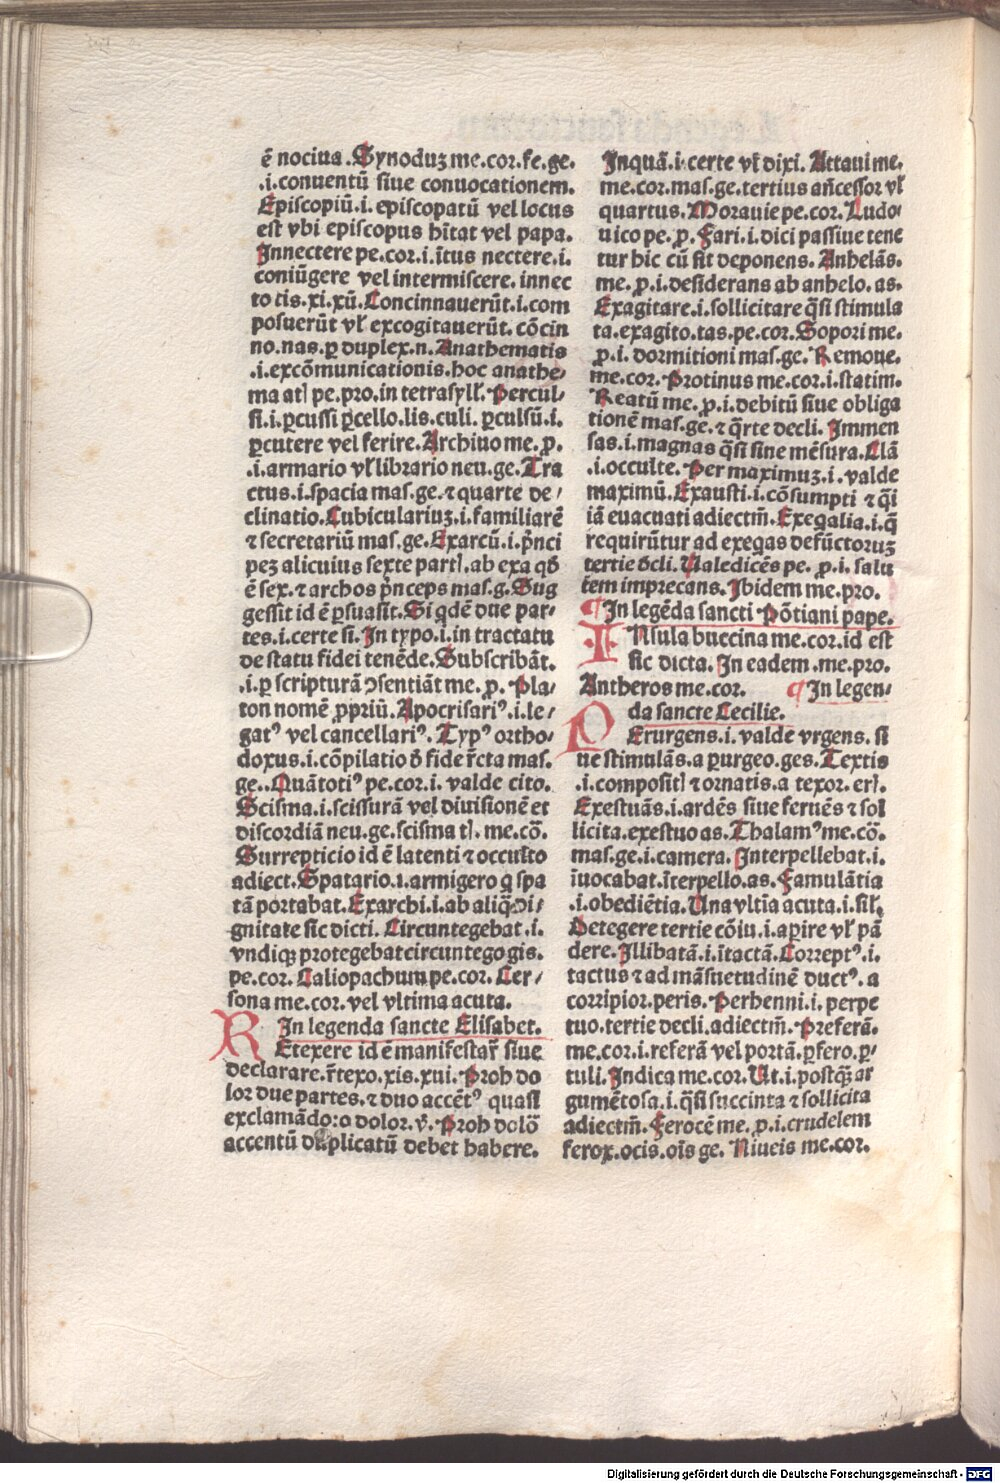 ē nociua. Synoduꝫ me. cor. fe. ge.
.i. conuentū siue conuocationem.
Episcopiū. i. episcopatū vel locus
est vbi episcopus hītat vel papa.
Innectere pe. cor. i. ītus nectere. i.
coniūgere vel intermiscere. innec
to tis. xi. xū. Concinnauerūt. i. com
posuerūt vł excogitauerūt. cōcin
no. nas. ꝑ duplex. n. Anathematis
.i. excōmunicationis. hoc anathe/
ma atꝭ pe. pro. in tetrasyłł. Percul/
si. i. ꝑcussi ꝑcello. lis. culi. ꝑculsū. i.
ꝑcutere vel ferire. Archiuo me. ꝓ.
.i. armario vł librario neu. ge. Tra
ctus. i. spacia mas. ge. ⁊ quarte de/
clinatio. Cubiculariuꝫ. i. familiarē
⁊ secretariū mas. ge. Exarcū. i. p̄nci
peꝫ alicuius sexte partꝭ. ab exa qḋ
ē sex. ⁊ archos p̄nceps mas. g. Sug
gessit id ē ꝑsuasit. Si qdē due par/
tes. i. certe si. In typo. i. in tractatu
de statu fidei tenēde. Subscribāt.
.i. ꝑ scripturā ꝯsentiāt me. ꝓ. Pla/
ton nomē ꝓpriū. Apocrisariꝰ. i. le/
gatꝰ vel cancellariꝰ. Typꝰ ortho/
doxus. i. cōpilatio ð fide r̄cta mas.
ge.. Quātotiꝰ pe. cor. i. valde cito.
Scisma. i. scissurā vel diuisionē et
discordiā neu. ge. scisma tꝭ. me. cō.
Surrepticio id ē latenti ⁊ occulto
adiect. Spatario. i. armigero q̇ spa
tā portabat. Exarchi. i. ab aliq̄ di/
gnitate sic dicti. Circuntegebat. i.
vndiqꝫ protegebat circuntego gis.
pe. cor. Caliopachum pe. cor. Cer/
sona me. cor. vel vltima acuta.
In legenda sancte Elisabet.
REtexere id ē manifestar̄ siue
declarare. r̄texo. xis. xui. Proh do
lor due partes. ⁊ duo accētꝰ quasi
exclamādo: o dolor. v̄. Proh dolō
accentū duplicatū debet habere.
Inquā. i. certe vł dixi. Attaui me.
me. cor. mas. ge. tertius añcessor vł
quartus. Morauie pe. cor. Ludo/
uico pe. ꝓ. Fari. i. dici passiue tene
tur hic cū sit deponens. Anhelās.
me. ꝓ. i. desiderans ab anhelo. as.
Exagitare. i. sollicitare q̄si stimula
ta. exagito. tas. pe. cor. Sopori me.
ꝓ. i. dormitioni mas. ge. Remoue.
me. cor. Protinus me. cor. i. statim.
Reatū me. ꝓ. i. debitū siue obliga
tionē mas. ge. ⁊ q̄rte decli. Immen
sas. i. magnas q̄si sine mēsura. Clā
.i. occulte. Per maximuꝫ. i. valde
maximū. Exausti. i. cōsumpti ⁊ q̄i
iā euacuati adiectm̄. Exegalia. i. q̄
requirūtur ad exegas defūctoruꝫ
tertie ðcli. Valedicēs pe. ꝓ. i. salu
tem imprecans. Ibidem me. pro.
¶ In legēda sancti Pōtiani pape.
INsula buccina me. cor. id est
sic dicta. In eadem. me. pro.
Antheros me. cor. ¶ In legen/
da sancte Cecilie.
PErurgens. i. valde vrgens. si
ue stimulās. a ꝑurgeo. ges. Textis
.i. compositꝭ ⁊ ornatis. a texor. erꝭ.
Exestuās. i. ardēs siue feruēs ⁊ sol
licita. exestuo as. Thalamꝰ me. cō.
mas. ge. i. camera. Interpellebat. i.
īuocabat. īterpello. as. Famulātia
.i. obediētia. Una vltīa acuta. i. sił.
Detegere tertie cōiu. i. aꝑire vł pā
dere. Illibatā. i. ītactā. Correptꝰ. i.
tactus ⁊ ad māsuetudinē ductꝰ. a
corripior. peris. Perhenni. i. perpe
tuo. tertie decli. adiectm̄. Preferā.
me. cor. i. referā vel portā. ꝑfero. ꝑ/
tuli. Indica me. cor. Ut. i. postqꝫ ar
gumētosa. i. q̄si succinta ⁊ sollicita
adiectm̄. Ferocē me. ꝓ. i. crudelem
ferox. ocis. oīs ge. Niueis me. cor.
Digitalisierung gefördert durch die Deutsche Forschungsgemeinschaft - DFG